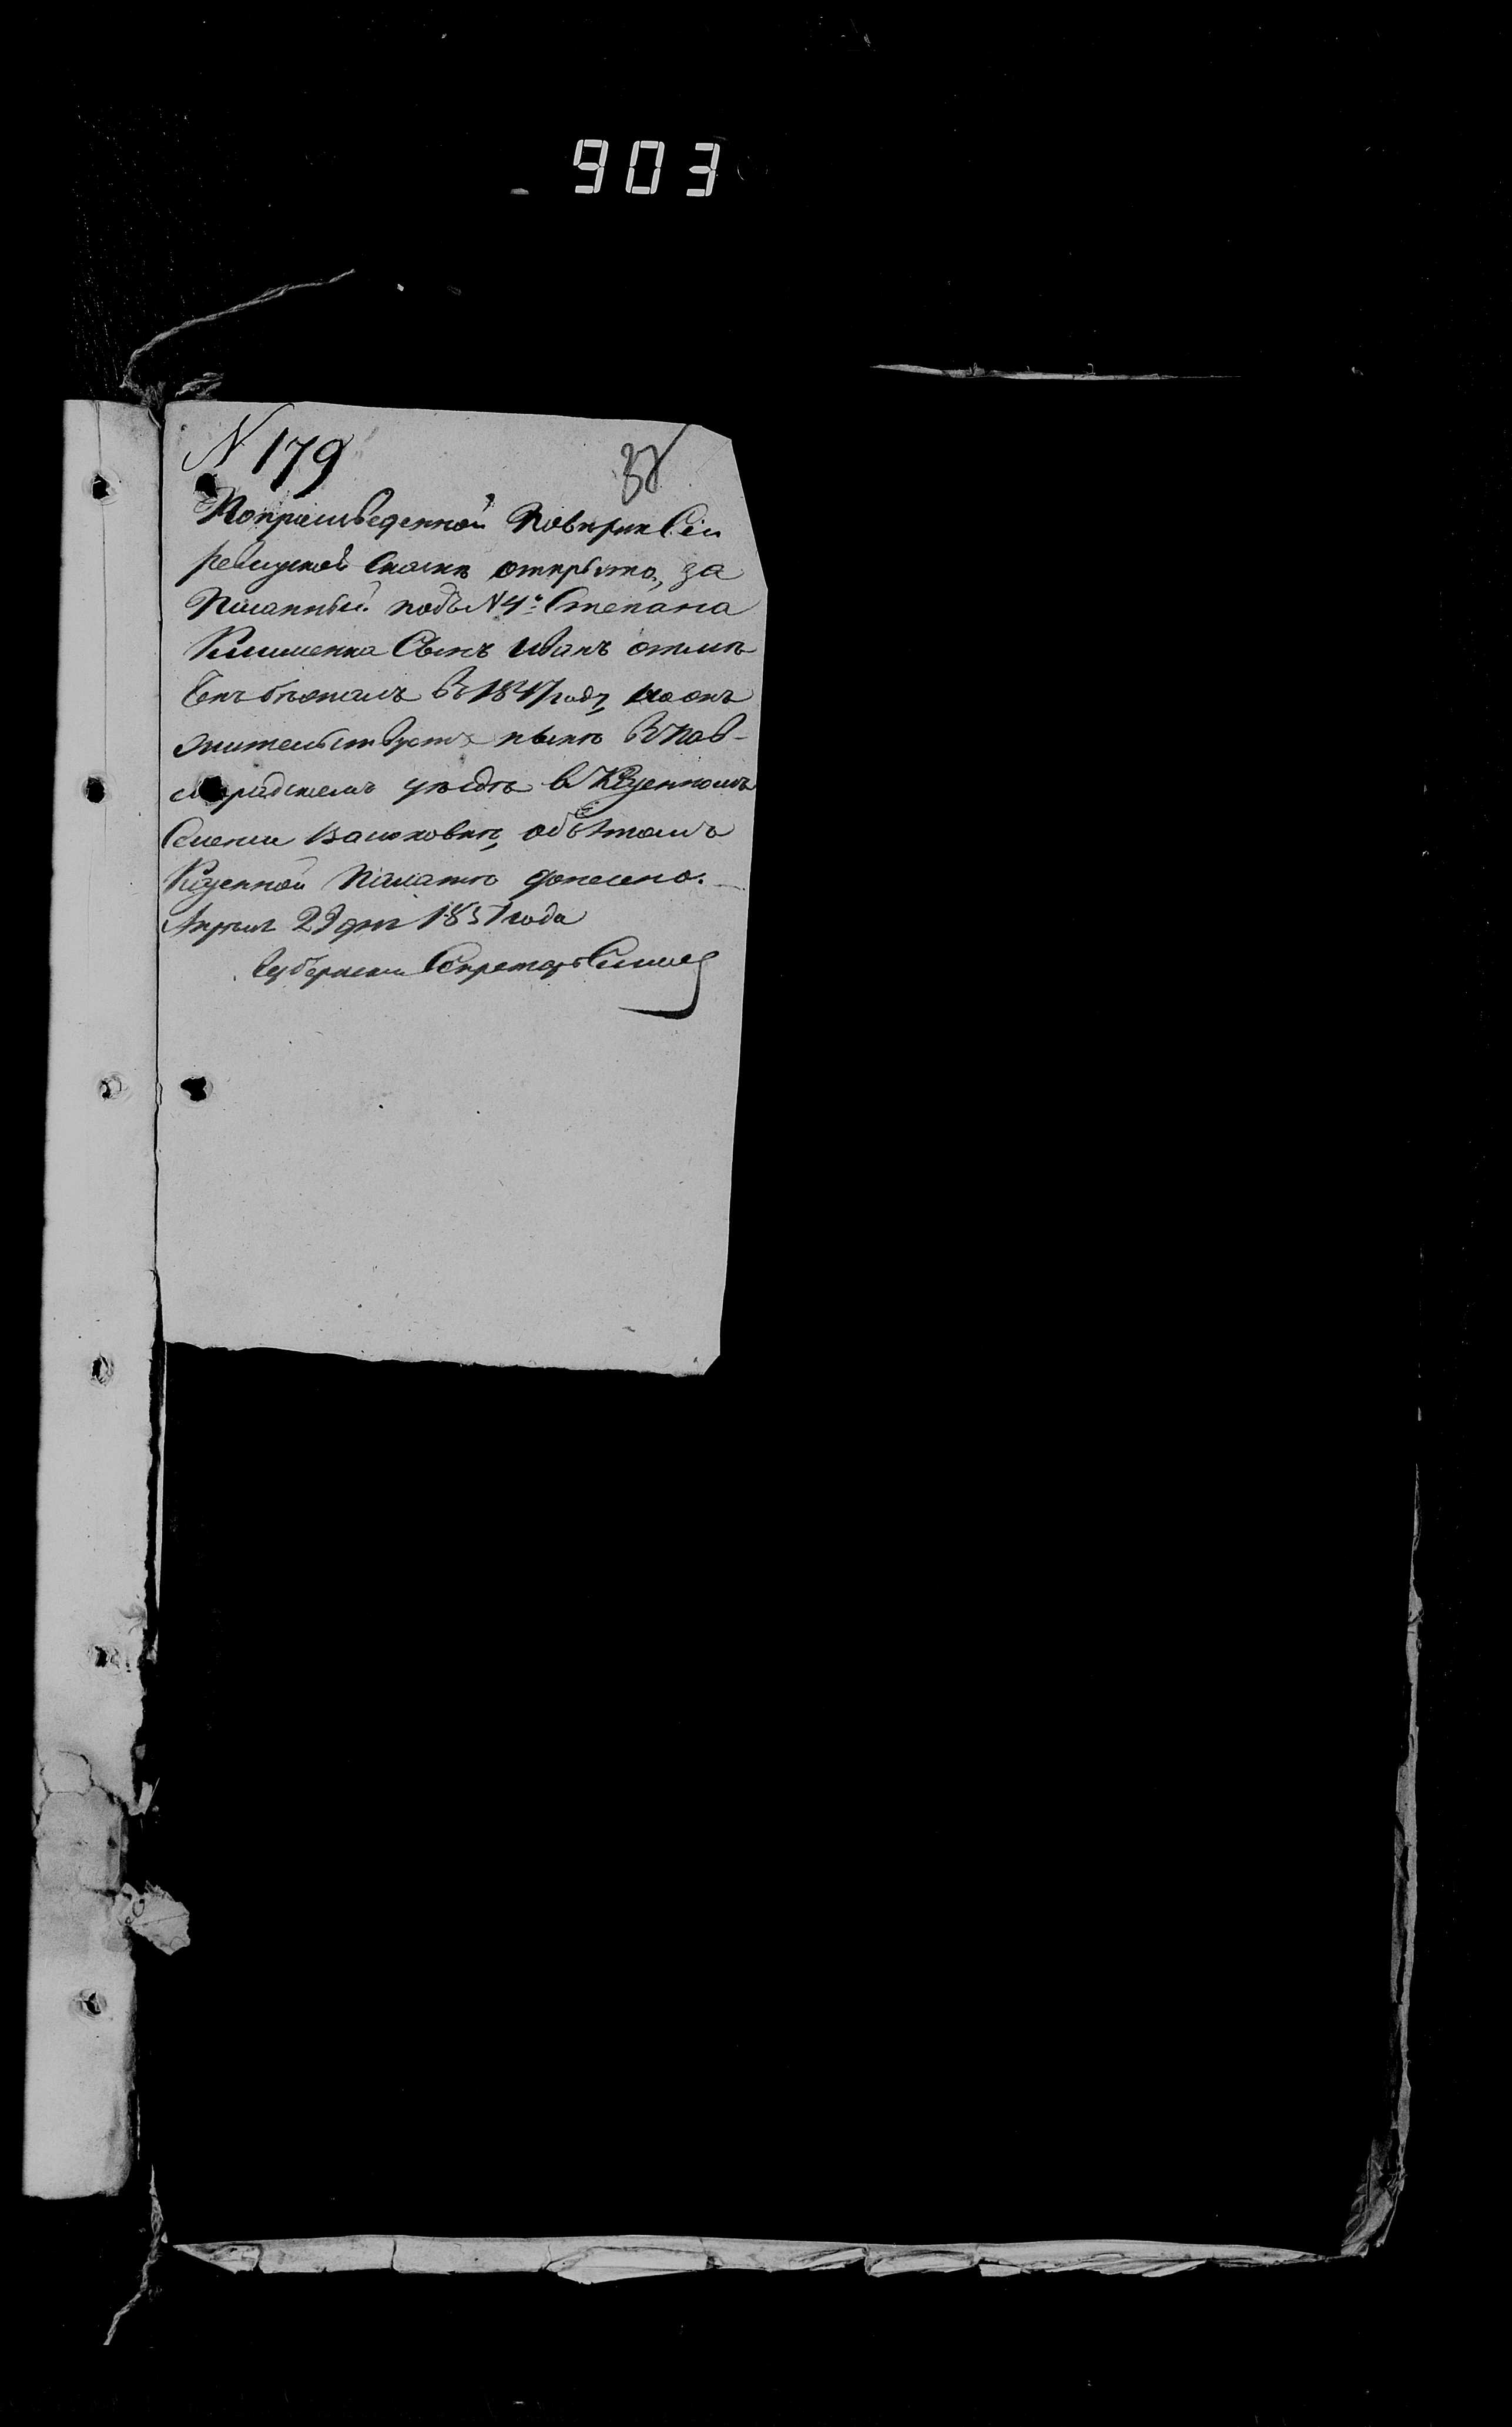 903
N 179
По произведенной поверки Сей
ревизской Сказки открыто, за
писанный подъ N 4: Степана
Клименка Сынъ Иванъ отмѣ
ченъ бѣжалъ въ 1847 году, но онъ
жительствуетъ нынѣ въ Пав-
лоградскомъ уѣздѣ в Казенномъ
Селеніи Васюковкѣ, объ этомъ
Казенной Палатѣ донесено.
Апрѣля 29 дня 1851 года
Губернскій Секретарь